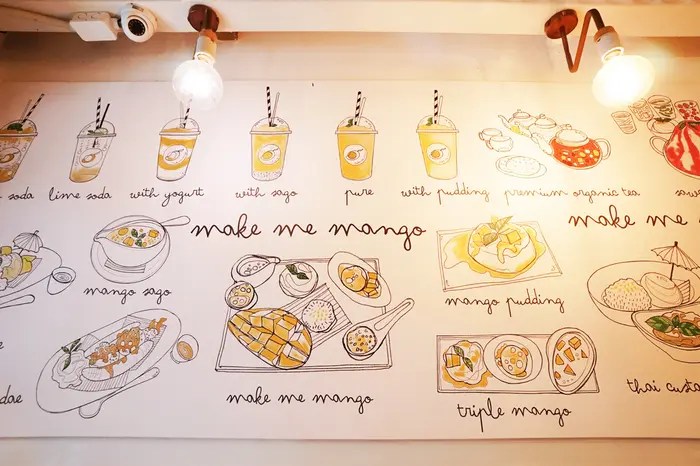 soda
lime soda
with yogurt
with sago
pure
with pudding
premium organic tea
make me mango
make me
mango sago
mango pudding
make me mango
triple mango
thai custa
dae